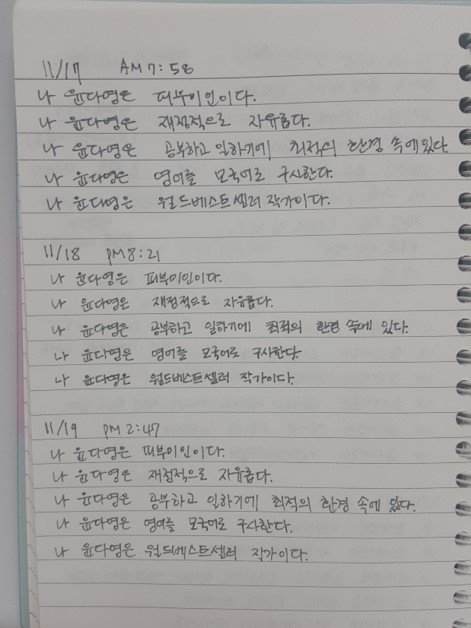 11/17 AM 7:58
나 윤다영은 피부미인이다.
나 윤다영은 재정적으로 자유롭다.
나 윤다영은 공부하고 일하기에 최적의 환경 속에 있다.
나 윤다영은 영어를 모국어로 구사한다.
나 윤다영은 월드베스트셀러 작가이다.
11/18 PM 8:21
나 윤다영은 피부미인이다.
나 윤다영은 재정적으로 자유롭다.
나 윤다영은 공부하고 일하기에 최적의 환경 속에 있다.
나 윤다영은 영어를 모국어로 구사한다.
나 윤다영은 월드베스트셀러 작가이다.
11/19 PM 2:47
나 윤다영은 피부미인이다.
나 윤다영은 재정적으로 자유롭다.
나 윤다영은 공부하고 일하기에 최적의 환경 속에 있다.
나 윤다영은 영어를 모국어로 구사한다.
나 윤다영은 월드베스트셀러 작가이다.